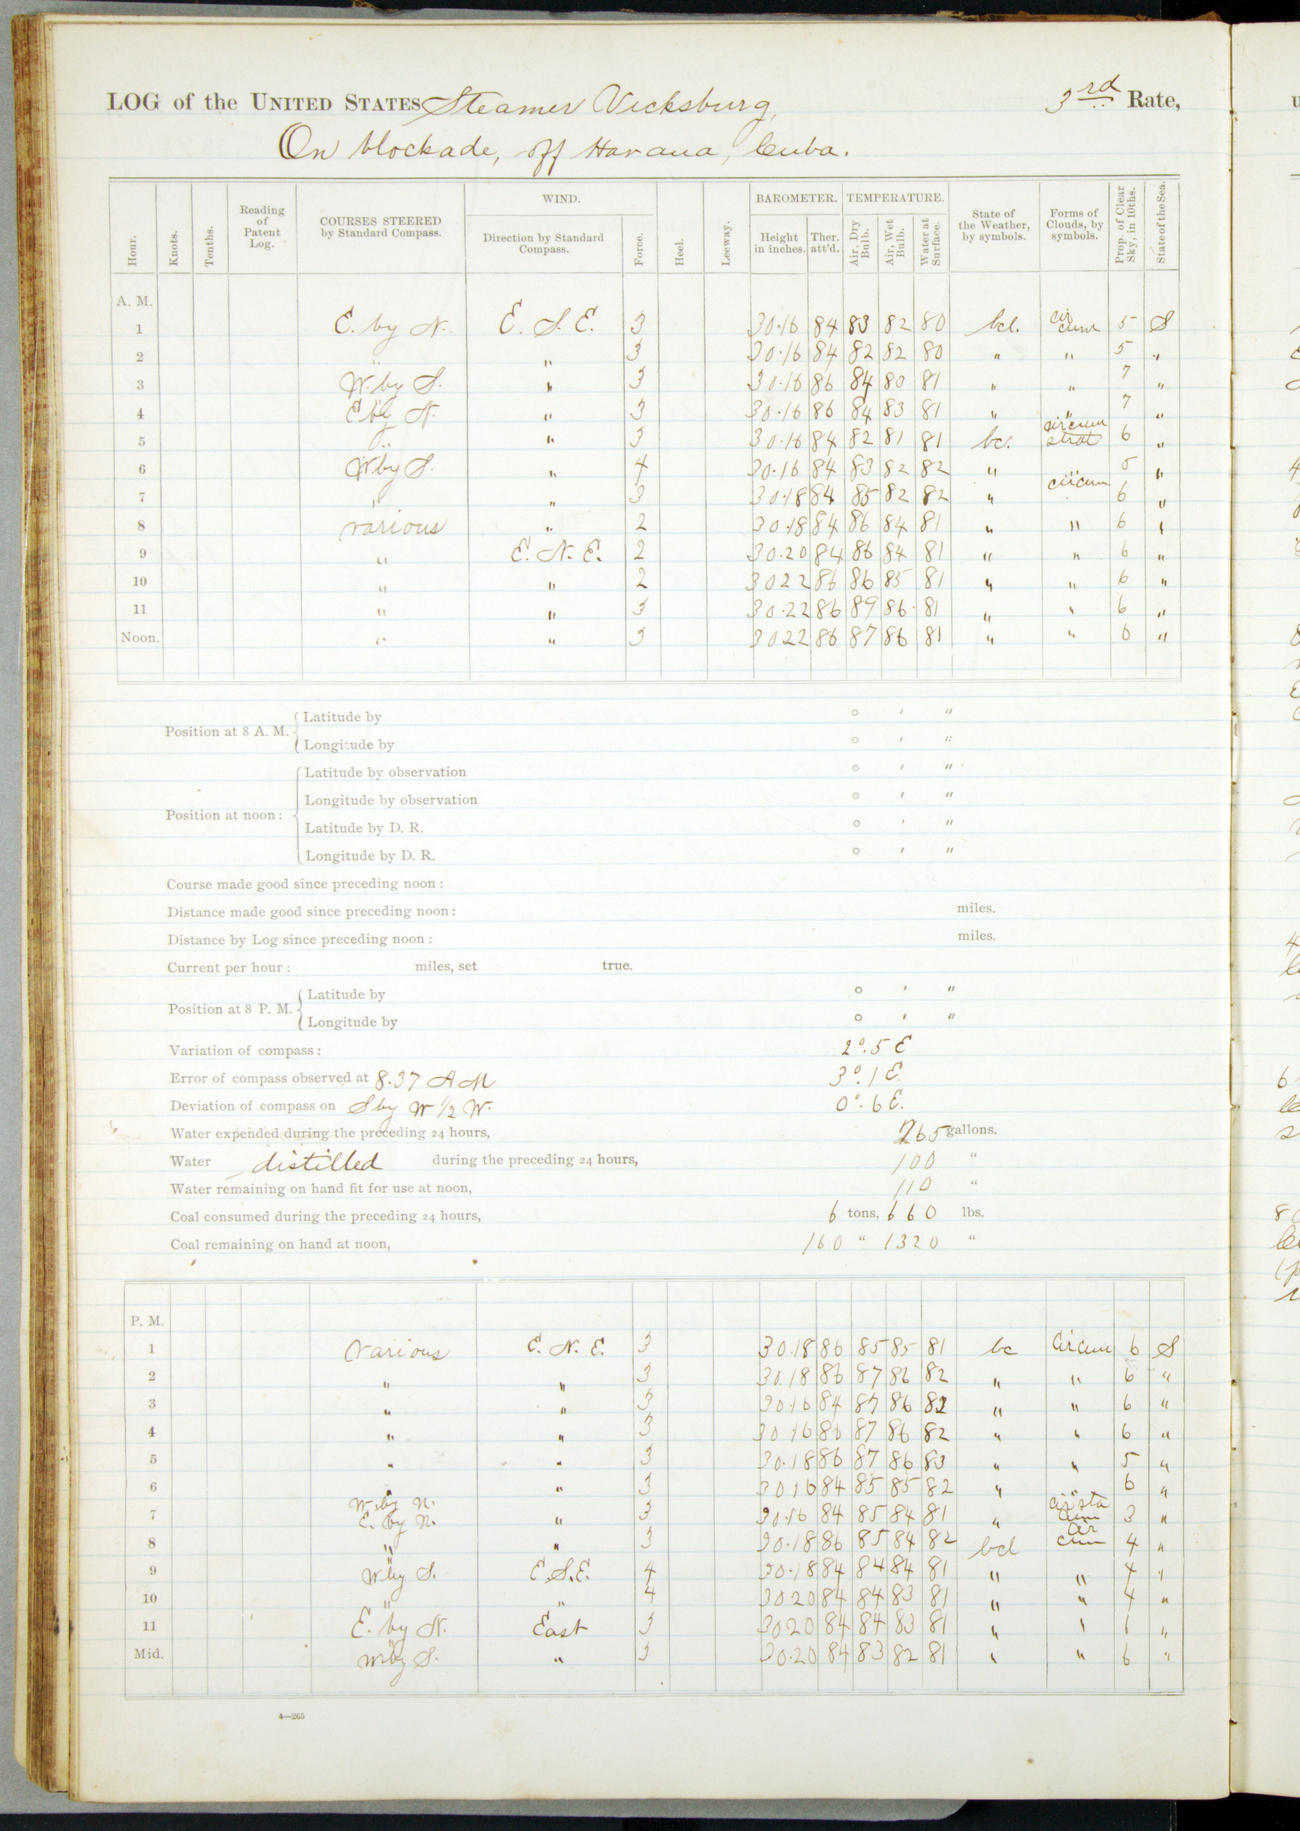 LOG of the UNITED STATES Steamer Vicksburg, 3rd Rate,
On blockade, off Havana, Cuba.
Hour. Knots. Tenths. Reading of Patent Log. COURSES STEERED by Standard Compass. WIND. Direction by Standard Compass. Force. Heel. Leeway. BAROMETER. Height in inches. Ther. att'd. TEMPERATURE. Air, Dry Bulb. Air, Wet Bulb. Water at Surface. State of the Weather, by symbols. Forms of Clouds, by symbols. Prop. of Clear Sky, in 10ths. State of the Sea.
A. M.
1 E. by N. E. S. E. 3 30.16 84 83 82 80 bcl. cir cum 5 S
2 " 3 30.16 84 82 82 80 " " 5 "
3 W. by S. " 3 30.16 86 84 80 81 " " 7 "
4 E by N. " 3 30.16 86 84 83 81 " " 7 "
5 " " 3 30.16 84 82 81 81 bc. circum strat 6 "
6 W by S. " 4 30.16 84 83 82 82 " " 5 "
7 " " 3 30.18 84 85 82 82 " circum 6 "
8 various " 2 30.18 84 86 84 81 " " 6 "
9 " E. N. E. 2 30.20 84 86 84 81 " " 6 "
10 " " 2 30 22 86 86 85 81 " " 6 "
11 " " 3 30.22 86 89 86 81 " " 6 "
Noon. " " 3 30 22 86 87 86 81 " " 6 "
Position at 8 A. M. Latitude by ° ' "
Longitude by ° ' "
Position at noon: Latitude by observation ° ' "
Longitude by observation ° ' "
Latitude by D. R. ° ' "
Longitude by D. R. ° ' "
Course made good since preceding noon:
Distance made good since preceding noon: miles.
Distance by Log since preceding noon: miles.
Current per hour: miles, set true.
Position at 8 P. M. Latitude by ° ' "
Longitude by ° ' "
Variation of compass: 2°.5 E
Error of compass observed at 8.37 AM 3°.1 E.
Deviation of compass on S by W 1/2 W. 0°.6 E.
Water expended during the preceding 24 hours, 265 gallons.
Water distilled during the preceding 24 hours, 100 "
Water remaining on hand fit for use at noon, 110 "
Coal consumed during the preceding 24 hours, 6 tons, 660 lbs.
Coal remaining on hand at noon, 160 " 1320 "
P. M.
1 various E. N. E. 3 30.18 86 85 85 81 bc Circum 6 S
2 " " 3 30.18 86 87 86 82 " " 6 "
3 " " 3 30.16 84 87 86 82 " " 6 "
4 " " 3 30.16 86 87 86 82 " " 6 "
5 " " 3 30.18 86 87 86 83 " " 5 "
6 " " 3 30 16 84 85 85 82 " " 6 "
7 W. by N. E. by N. " 3 30.16 84 85 84 81 " cir sta cum 3 "
8 " " 3 30.18 86 85 84 82 bcl cir cum 4 "
9 W by S. E.S.E. 4 30.18 84 84 84 81 " " 4 "
10 " " 4 30 20 84 84 83 81 " " 4 "
11 E. by N. East 3 30 20 84 84 83 81 " " "
Mid. W by S. " 3 30.20 84 83 82 81 " " 6 "
4—265